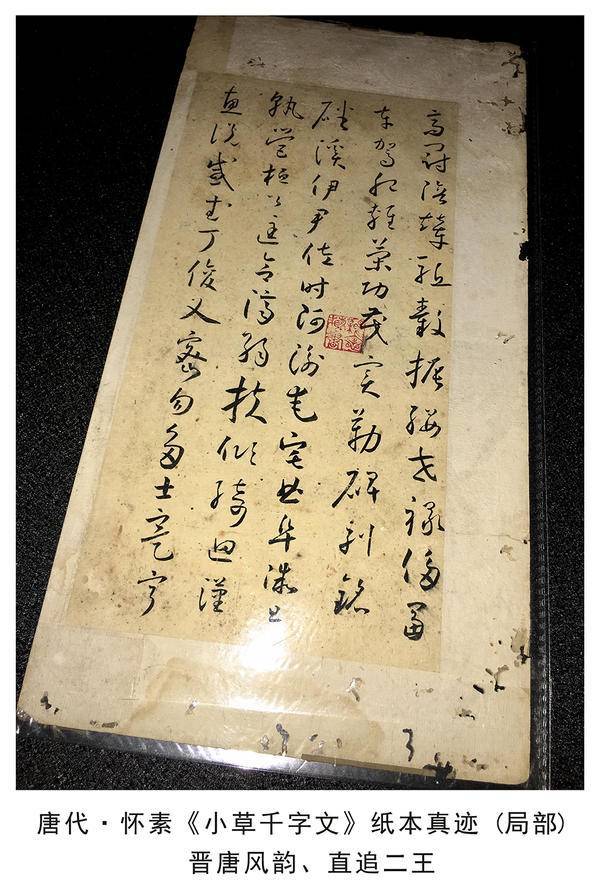 高冠陪輦驅轂振纓世祿侈富
車駕肥輕策功茂實勒碑刻銘
磻溪伊尹佐時阿衡奄宅曲阜微旦
孰營桓公匡合濟弱扶傾綺迴漢
惠說感武丁俊乂密勿多士寔寧
唐代·怀素《小草千字文》纸本真迹（局部）
晋唐风韵、直追二王